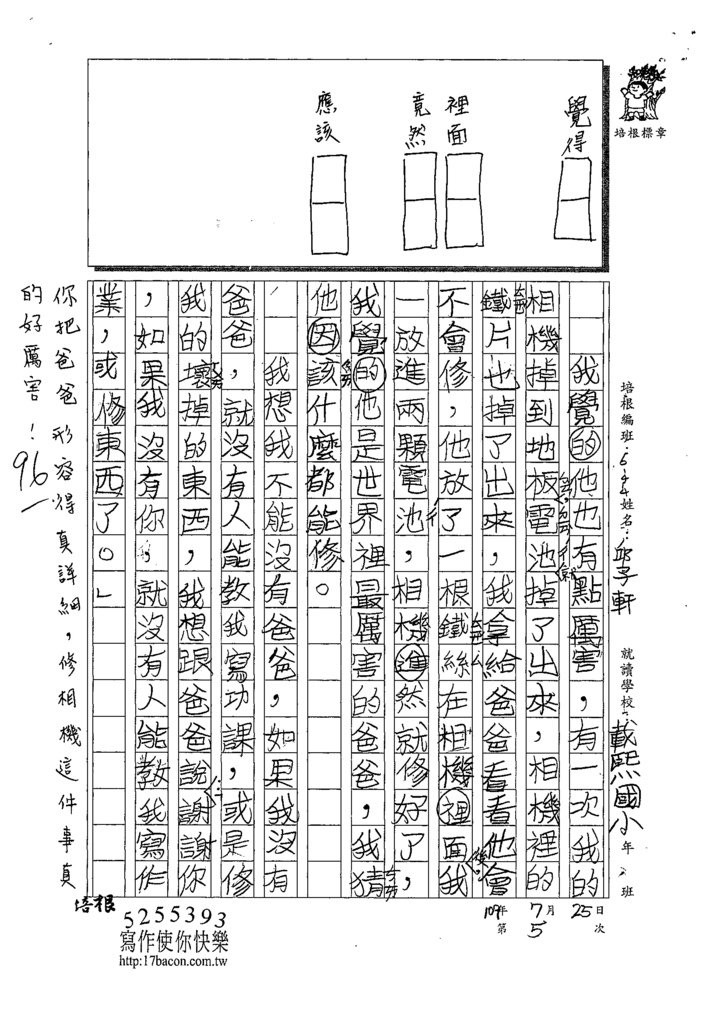 培根標章
覺得
裡面
竟然
應該
培根編班：644姓名：邱子軒 就讀學校：載熙國小 年 2 班
109年7月25日
第5次
我覺的他也有點厲害，有一次我的
相機掉到地板電池掉了出來，相機裡的
鐵片也掉了出來，我拿給爸爸看看他會
不會修，他放了一根鐵絲在相機裡面我
一放進兩顆電池，相機進然就修好了，
我覺的他是世界裡最厲害的爸爸，我猜
他因該什麼都能修。
我想我不能沒有爸爸，如果我沒有
爸爸，就沒有人能教我寫功課，或是修
我的壞掉的東西，我想跟爸爸說謝謝你
，如果我沒有你，就沒有人能教我寫作
業，或修東西了。」
你把爸爸形容得真詳細，修相機這件事真
的好厲害！
96
培根
5255393
寫作使你快樂
http:17bacon.com.tw